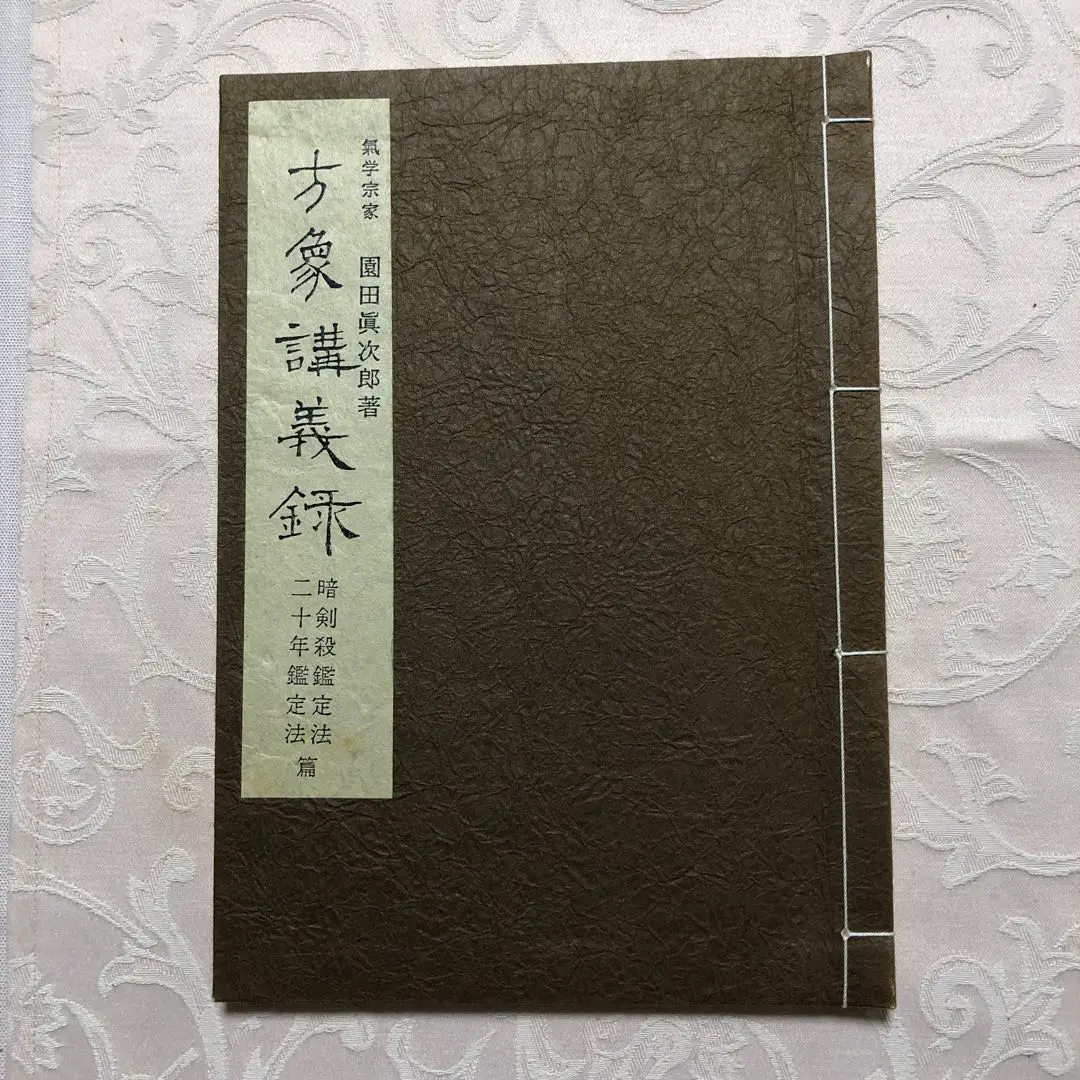 氣学宗家 園田眞次郎著
方象講義録
暗剣殺鑑定法
二十年鑑定法
篇